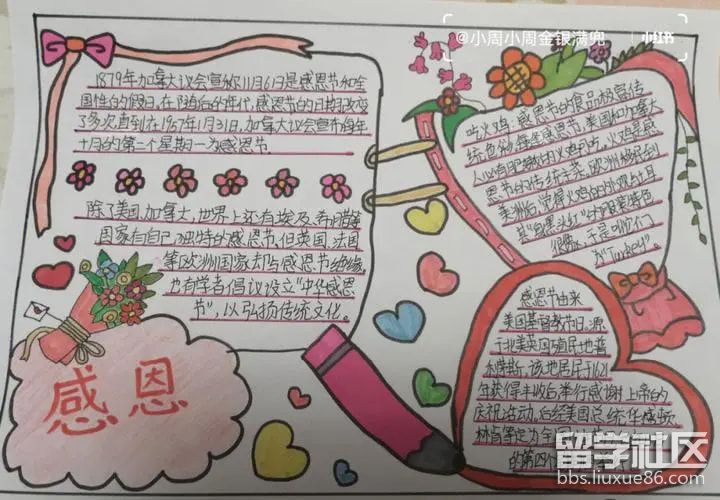 @小周小周金银满兜
小红书
1879年加拿大议会宣称11月6日是感恩节和全
国性的假日,在随后的年代,感恩节的日期改变
了多次,直到在1957年1月31日,加拿大议会宣布每年
十月的第二个星期一为感恩节.
除了美国、加拿大,世界上还有埃及、希腊等
国家有自己独特的感恩节,但英国、法国
等欧洲国家却与感恩节绝缘,
也有学者倡议设立"中华感恩
节",以弘扬传统文化。
感恩
吃火鸡:感恩节的食品极富传
统色彩,每逢感恩节,美国和加拿大
人必有肥嫩的火鸡可吃。火鸡是感
恩节的传统主菜,欧洲移民到
美洲后,觉得火鸡的外观与土耳
其"身黑头红"的服装特色
很像,于是叫它们
为"Turkey"。
感恩节由来
美国基督教节日,源
于北美英国殖民地普
利茅斯,该地居民于1621
年获得丰收后,举行感谢上帝的
庆祝活动,后经美国总统华盛顿、
林肯等定为全国
的第四个
留学社区
bbs.liuxue86.com